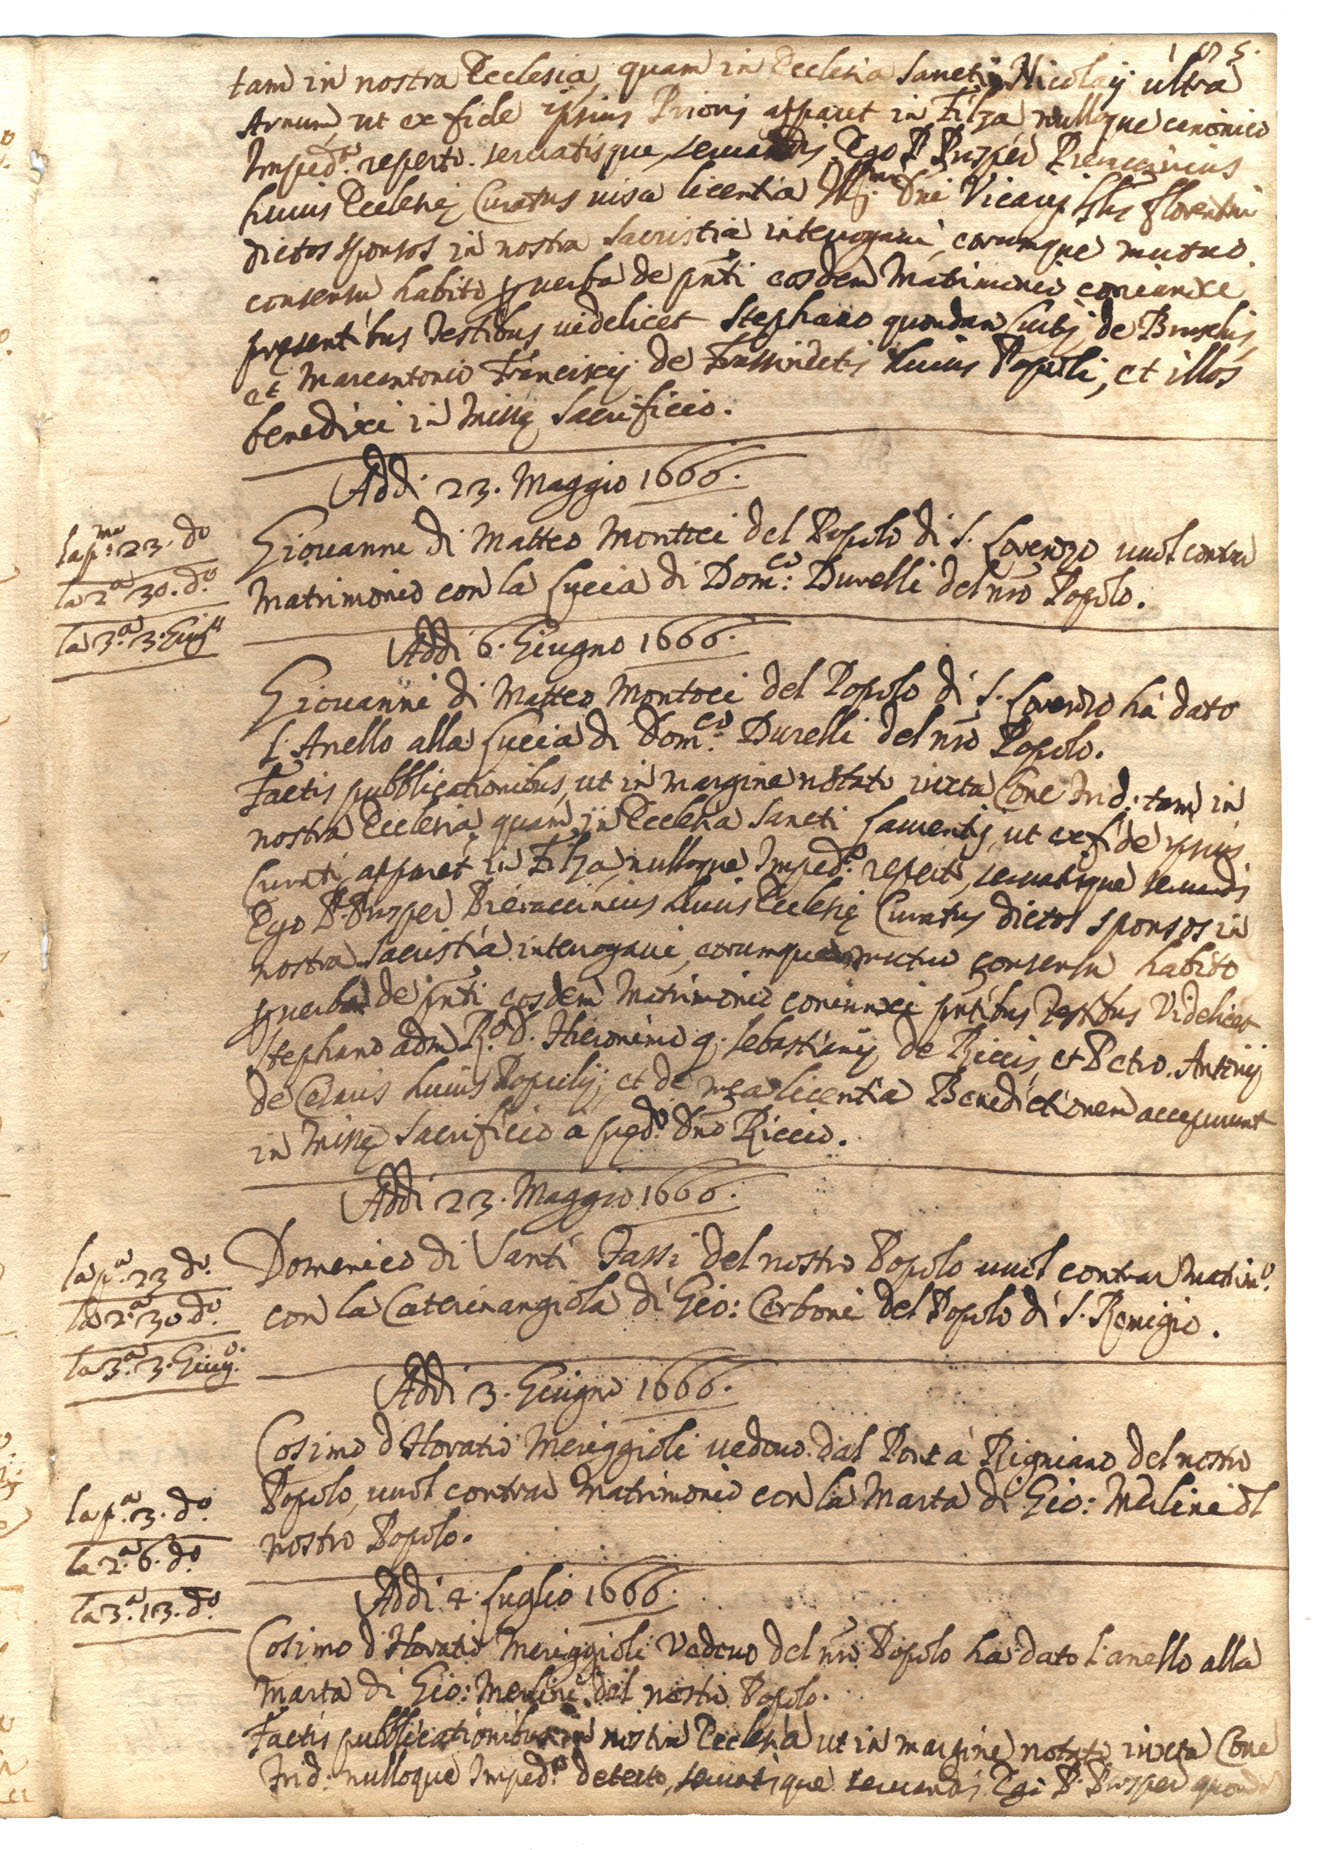 185.
tam in nostra Ecclesia, quam in Ecclesia Sancti Nicolaij ultra
Arnum, ut ex fide ipsius Prioris apparet in Filza nulloque canonico
Imped.to reperto. seruatisque, seruandis. Ego P. Prosper Pieraccinius
huius Ecclesię Curatus uisa licentia Dni Vicarij florentini
dictos sponsos in nostra Sacristia interrogaui, eorumque mutuo
consensu habito p uerba de pnti eosdem Matrimonio coniunxi
pręsentibus Testibus uidelicet Stephano quondam de
et Marcantonio Francisci de huius Populi, et illos
benedixi in Missę Sacrificio.
Addi 23. Maggio 1666.
la p.ma 23. d.o
la 2.a 30. d.o
la 3.a 3. Giug.o
Giouanni di Matteo Montoci del Popolo di S. Lorenzo uuol contrar
Matrimonio con la Lucia di Dom.co: Durelli del nro Popolo.
Addi 6. Giugno 1666.
Giouanni di Matteo Montoci del Popolo di S. Lorenzo hà dato
L'Anello alla Lucia di Dom.co: Durelli del nro Popolo.
Factis pubblicationibus, ut in margine notato iuxta Conc Trid: tam in
nostra Ecclesia quam in Ecclesia Sancti Laurentij, ut ex fide ipsius
Curati, apparet in Filza, nulloque Imped.o reperto, seruatisque seruandis
Ego P. Prosper Pieraccinius huius Ecclesię Curatus dictos sponsos in
nostra Sacristia interrogaui, eorumque mutuo consensu habito
p uerba de pnti eosdem Matrimonio coniunxi pntibus Testibus Videlicet
Stephano adm R.o D. Hieronimo q. Sebastiani de Riccis, et Petro Antonij
de huius Populij, et de mea licentia Benedictionem acceperunt
in Missę Sacrificio a pręd.o Dno Riccio.
Addi 23. Maggio 1666.
la p.a 23 d.o
la 2.a 30 d.o
la 3.a 3. Giug.o
Domenico di Santi Fassi del nostro Popolo uuol contrar Matrim.o
con la Caterinangiola di Gio: Cerboni del Popolo di S. Remigio.
Addi 3. Giugno 1666.
la p.a 3. d.o
la 2.a 6. d.o
la 3.a 13. d.o
Cosimo d'Horatio Meriggioli uedouo dal Pont'a Rigniano del nostro
Popolo, uuol contrar Matrimonio con la Marta di Gio: Merlini dl
nostro Popolo.
Addi 4. Luglio 1666.
Cosimo d'Horatio Meriggioli Vedouo del nro Popolo ha dato l'anello alla
Marta di Gio: Merlini del nostro Popolo.
Factis pubblicationibus in nostra Ecclesia ut in margine notato iuxta Conc
Trid: nulloque Imped.o detecto, seruatisque seruandis Ego P. Prosper quondam